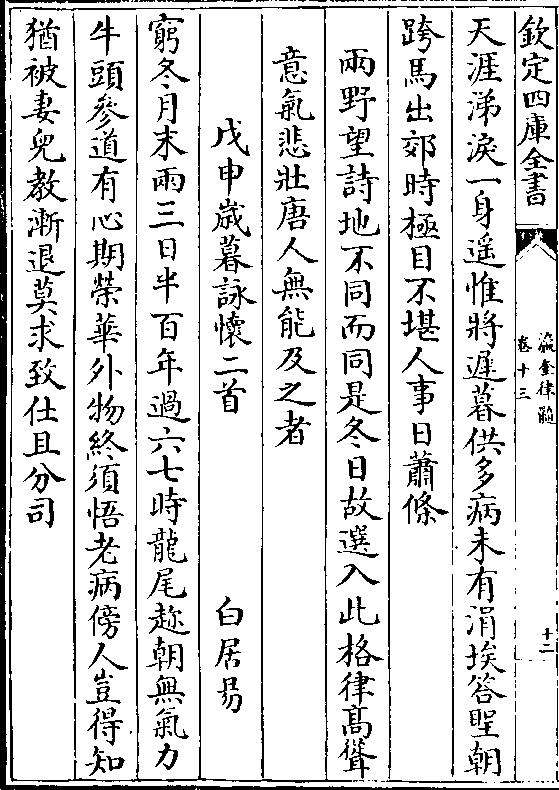 欽定四庫全書
瀛奎律髓
卷十三
十二
天涯涕淚一身遥惟將遲暮供多病未有涓埃答聖朝
跨馬出郊時極目不堪人事日蕭條
兩野望詩地不同而同是冬日故選入此格律髙聳
意氣悲壯唐人無能及之者
戊申嵗暮詠懷二首　白居易
窮冬月末兩三日半百年過六七時龍尾趂朝無氣力
牛頭參道有心期榮華外物終須悟老病傍人豈得知
猶被妻兒教漸退莫求致仕且分司